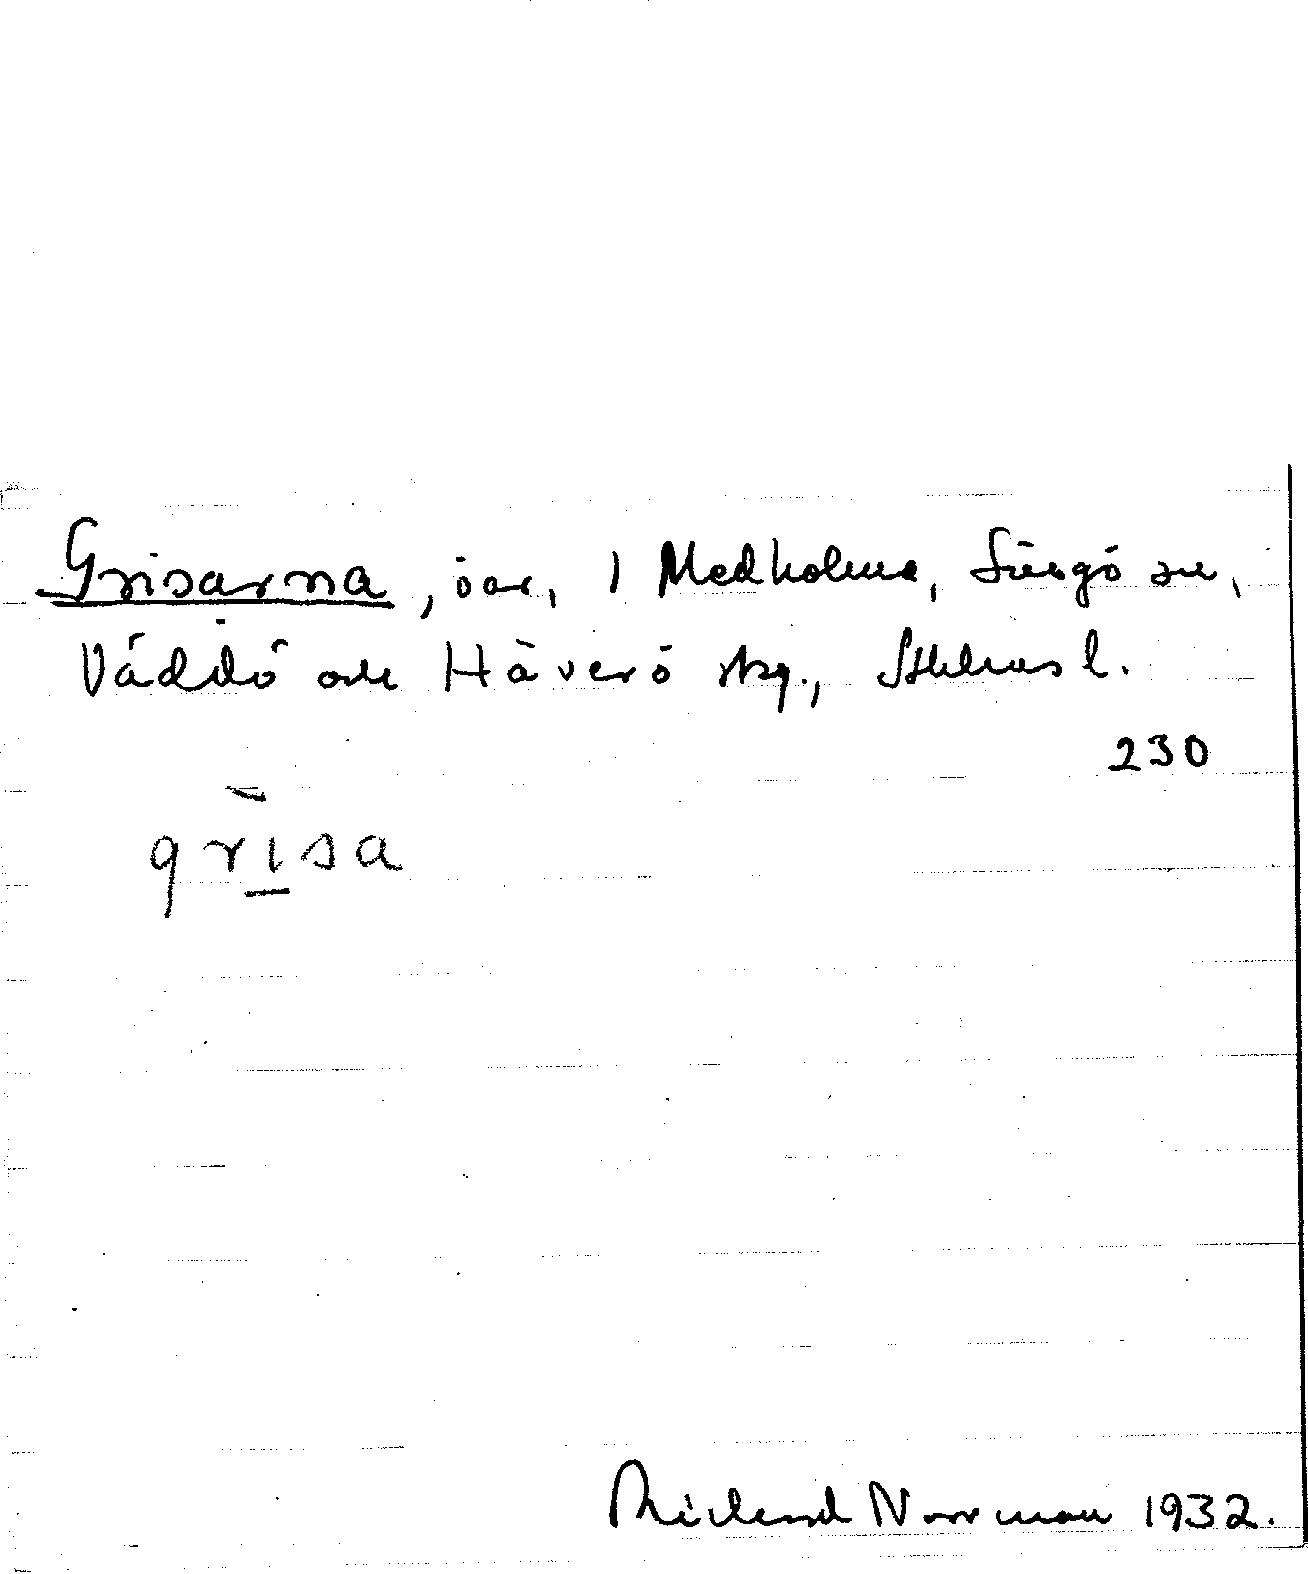 Grisarna, öar, 1 Medholma, Singö sn,
Väddö och Häverö skg., Sthlms l.
230
grisa
Rickard Norrman 1932.